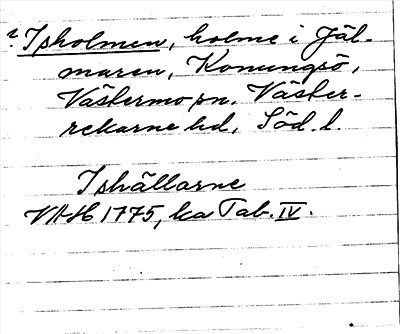 ? Isholmen, holme i Jäl-
maren, Konungsö,
Västermo sn. Väster-
rekarne hd, Söd. l.
Ishällarne
VAH 1775, ka Tab. IV.